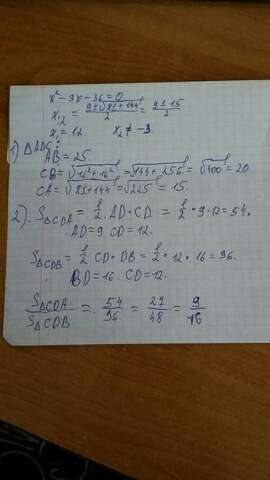 x² - 9x - 36 = 0
x₁,₂ = (9 ± √(81 + 144))/2 = (9 ± 15)/2
x₁ = 12    x₂ ≠ -3
1) △ADC:
AB = 25.
CB = √(12² + 16²) = √(144 + 256) = √400 = 20.
CA = √(81 + 144) = √225 = 15.
2). S△CDA = 1/2 · AD · CD = 1/2 · 9 · 12 = 54.
AD = 9. CD = 12.
S△CDB = 1/2 CD · DB = 1/2 · 12 · 16 = 96.
BD = 16. CD = 12.
S△CDA/S△CDB = 54/96 = 27/48 = 9/16